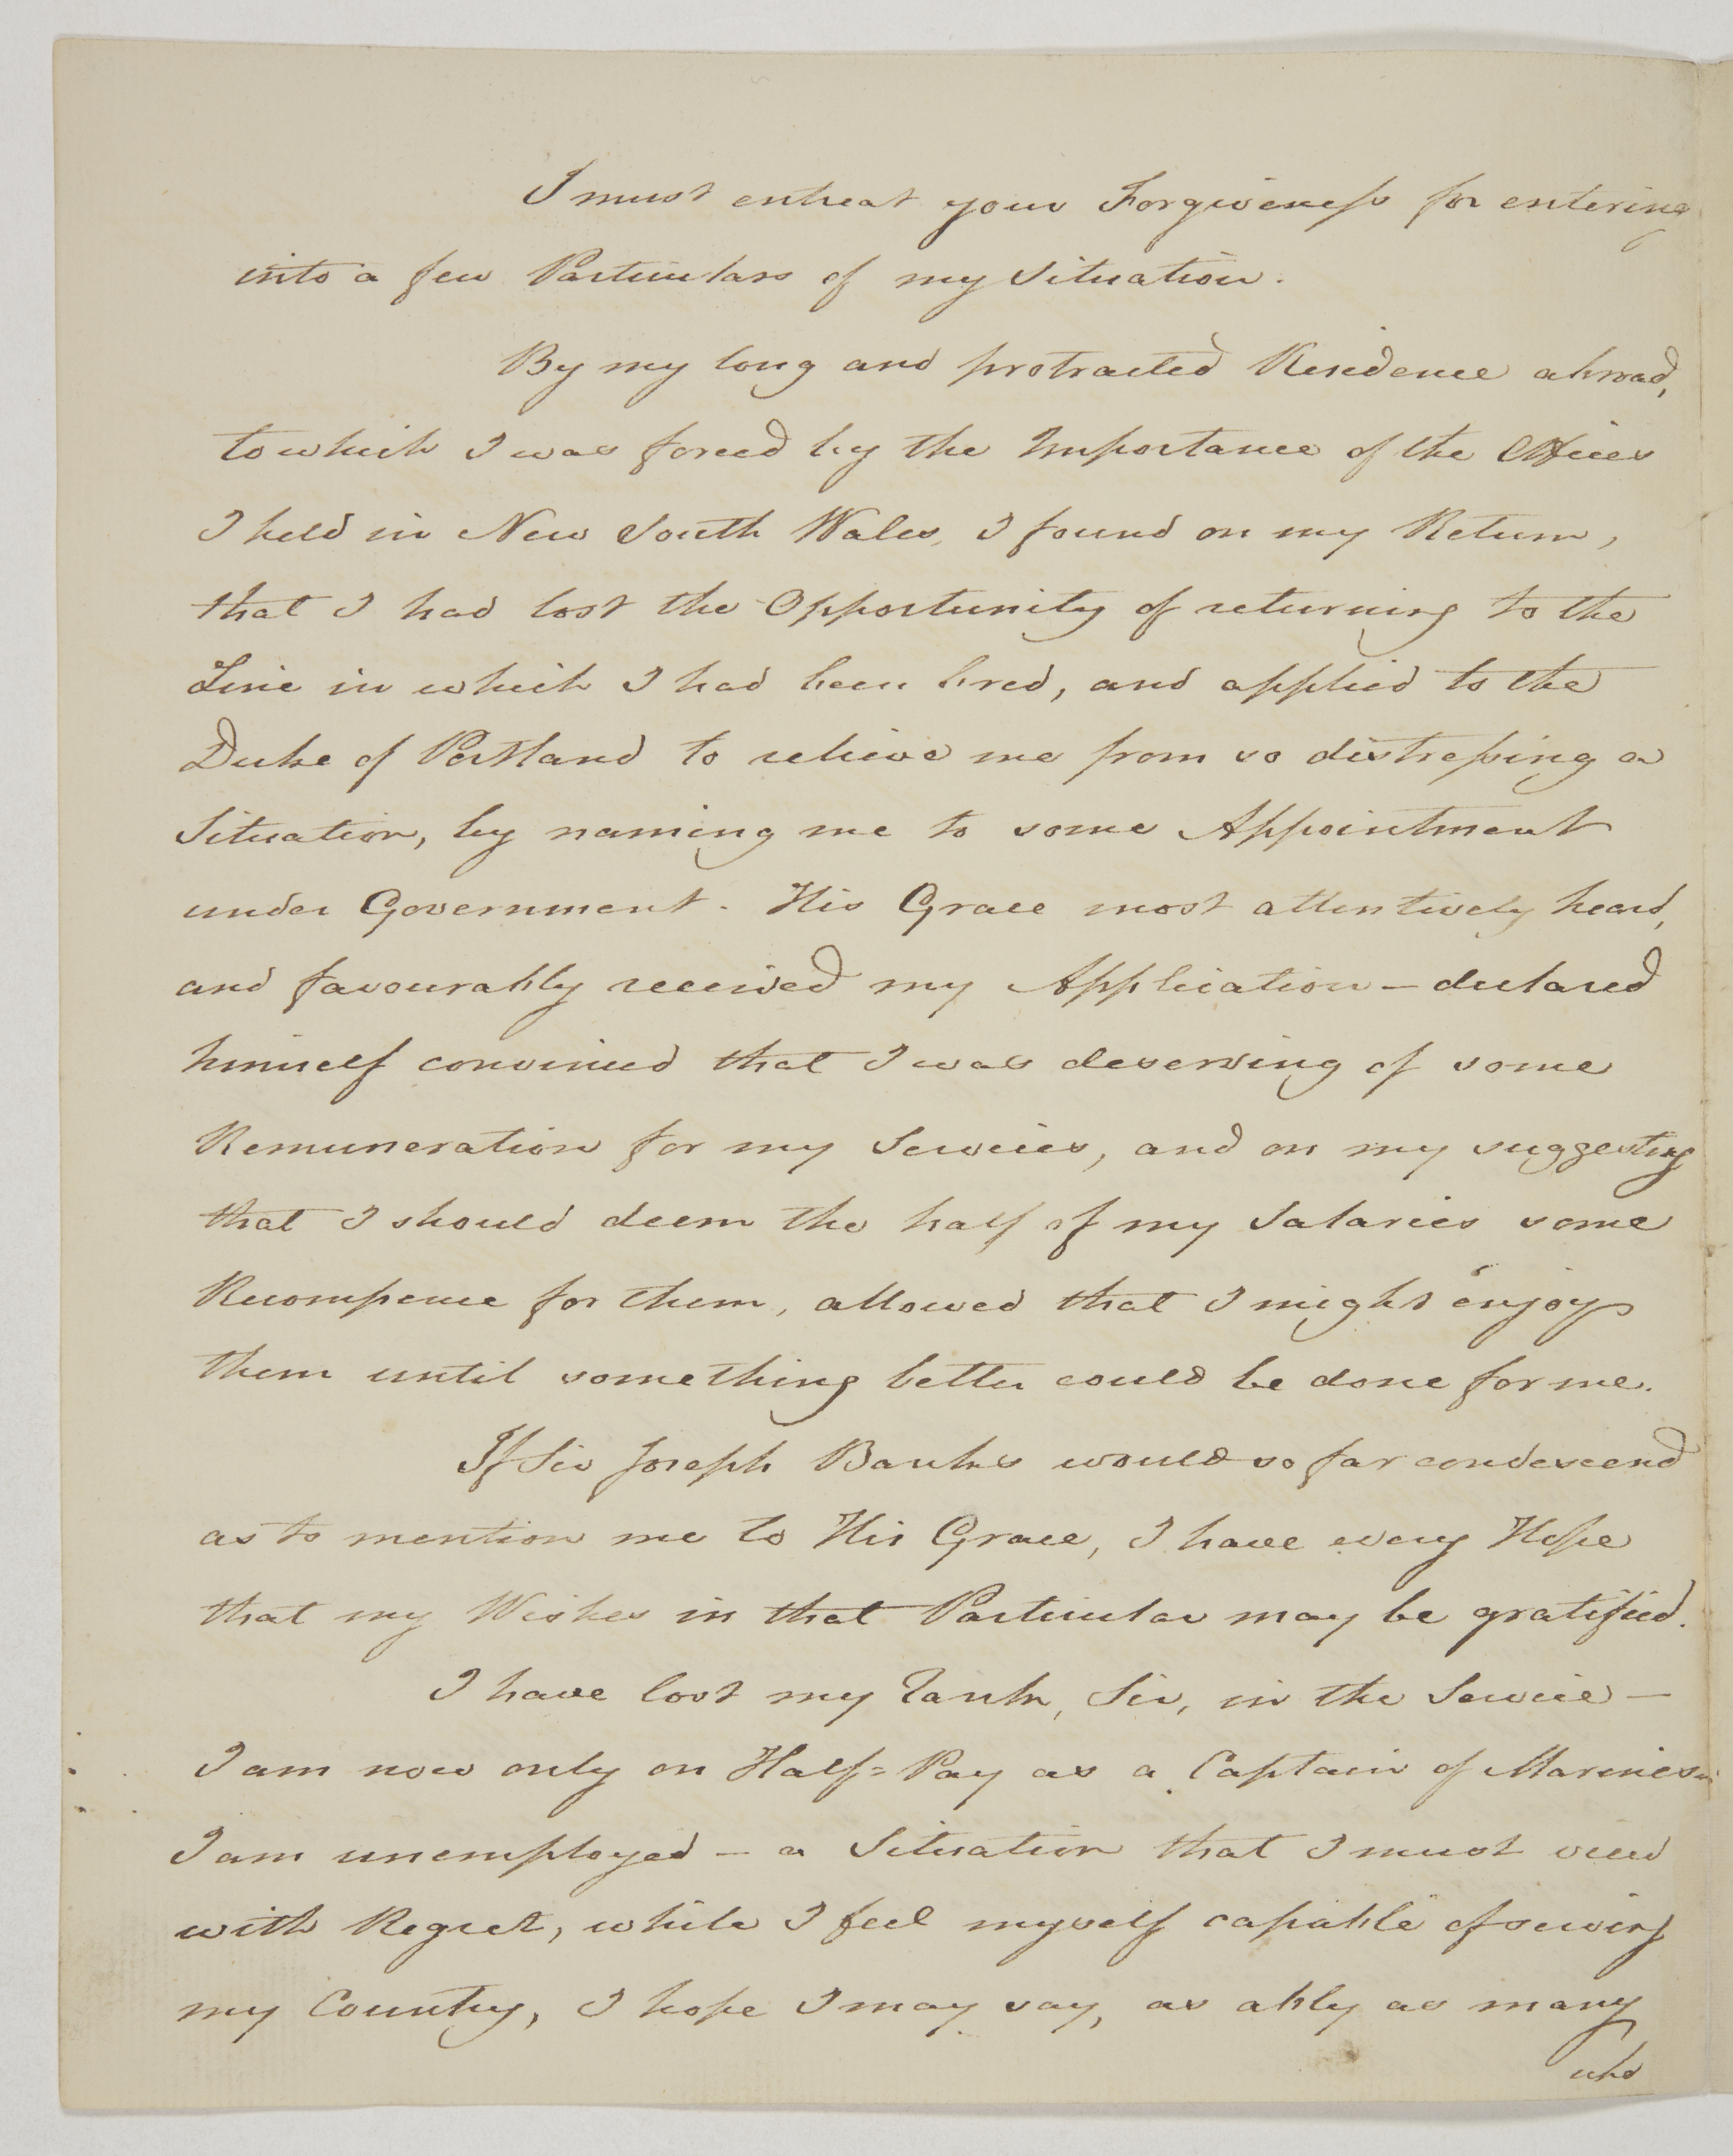 I must entreat your Forgiveness for entering
into a few Particulars of my Situation.
By my long and protracted Residence abroad,
to which I was forced by the Importance of the Offices
I held in New South Wales, I found on my Return,
that I had lost the Opportunity of returning to the
Line in which I had been bred, and applied to the
Duke of Portland to relieve me from so distressing a
Situation, by naming me to some Appointment
under Government. His Grace most attentively heard,
and favourably received my Application – declared
himself convinced that I was deserving of some
Remuneration for my Services, and on my suggesting
that I should deem the half of my Salaries some
Recompence for them, allowed that I might enjoy
them until something better could be done for me.
If Sir Joseph Banks would so far condescend
as to mention me to His Grace, I have every Hope
that my Wishes in that Particular may be gratified.
I have lost my Rank, Sir, in the Service –
I am now only on Half=Pay as a Captain of Marines –
I am unemployed – a Situation that I must view
with Regret, while I feel myself capable of serving
my Country, I hope I may say, as ably as many
who